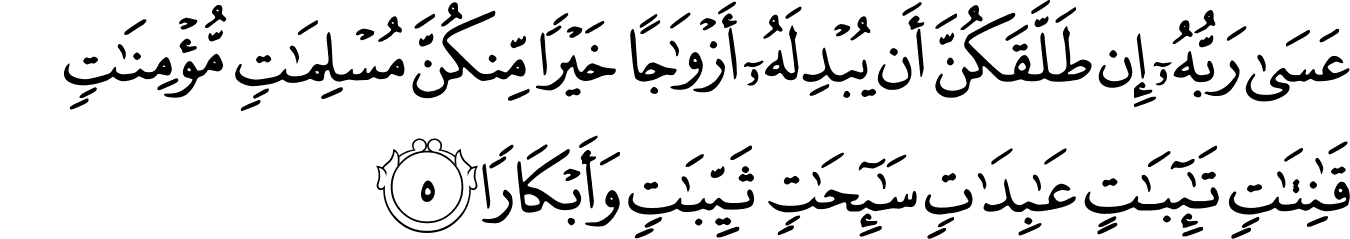 عَسَىٰ رَبُّهُۥٓ إِن طَلَّقَكُنَّ أَن يُبْدِلَهُۥٓ أَزْوَٰجًا خَيْرًا مِّنكُنَّ مُسْلِمَٰتٍ مُّؤْمِنَٰتٍ
قَٰنِتَٰتٍ تَٰٓئِبَٰتٍ عَٰبِدَٰتٍ سَٰٓئِحَٰتٍ ثَيِّبَٰتٍ وَأَبْكَارًا ٥